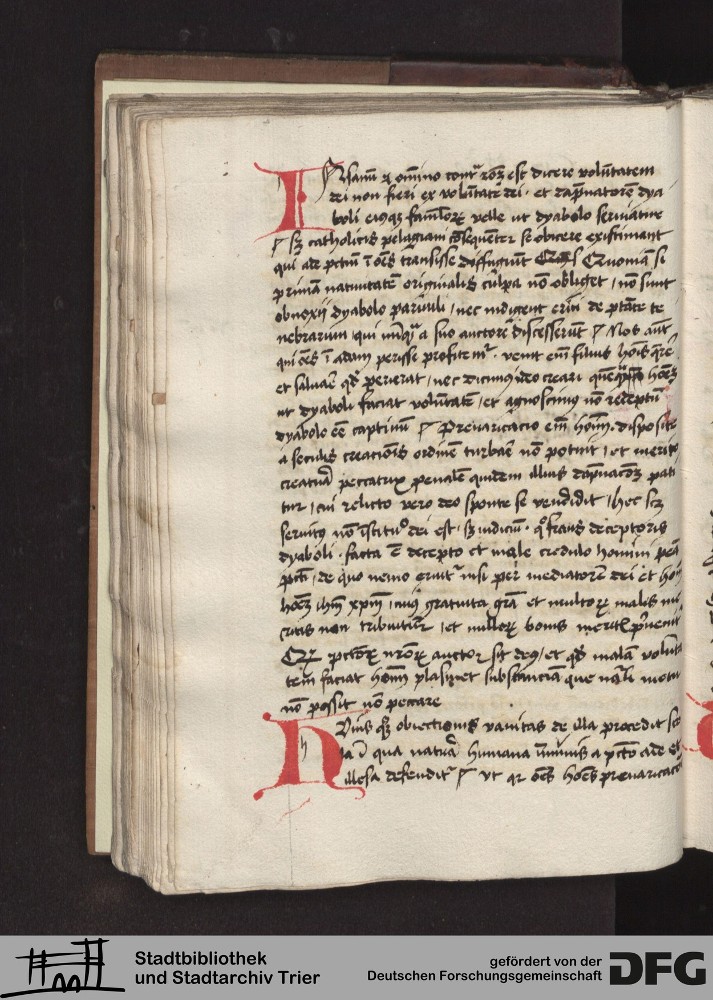 INsanum et omnino contra rationem est dicere voluntatem
dei non fieri ex voluntate dei · et dampnatorem dya
boli eiusque famulorum velle ut dyabolo serviatur
sed catholicis pelagiani consequenter se obicere existimant
qui ade peccatum in omnes transisse diffugiunt Quoniam si
primam nativitatem originalis culpa non obliget / non sunt
obnoxii dyabolo parvuli / nec indigent erui de potestate te
nebrarum / qui numquam a suo auctore discesserunt Nos autem
qui omnes in adam perisse profitemur · venit enim filius hominis querere
et salvare quod perierat / nec dicimus ideo creari homines
ut dyaboli faciat voluntatem / et agnoscimus non redemptum
dyabolo esse captivum Prevaricacio enim hominum disposite
a seculis creationis ordinem turbare non potuit / et merito
creatura peccatrix penalem quidem illius dampnacionem pati
tur / cui relicto vero deo sponte se vendidit / hec scilicet
servitus non institutio dei est · sed iudicium · quo fraus deceptoris
dyaboli · facta est decepto et male credulo homini pena
peccati / de quo nemo eruitur nisi per mediatorem dei et hominum
hominem ihesum xpistum / cuius gratuita gratia et multorum malis me
ritis non tribuitur / et nullorum bonis meritis prevenitur
Quod peccatorum nostrorum auctor sit deus / et quod malam volunta
tem faciat hominum plasmet substanciam que naturali motu
non possit non peccare
Huius quoque obiectionis vanitas de illa procedit sco
la in qua natura humana immunis a peccato ade et
illesa defenditur Ut quia omnes homines prevaricacione
Stadtbibliothek
und Stadtarchiv Trier
gefördert von der
Deutschen Forschungsgemeinschaft
DFG